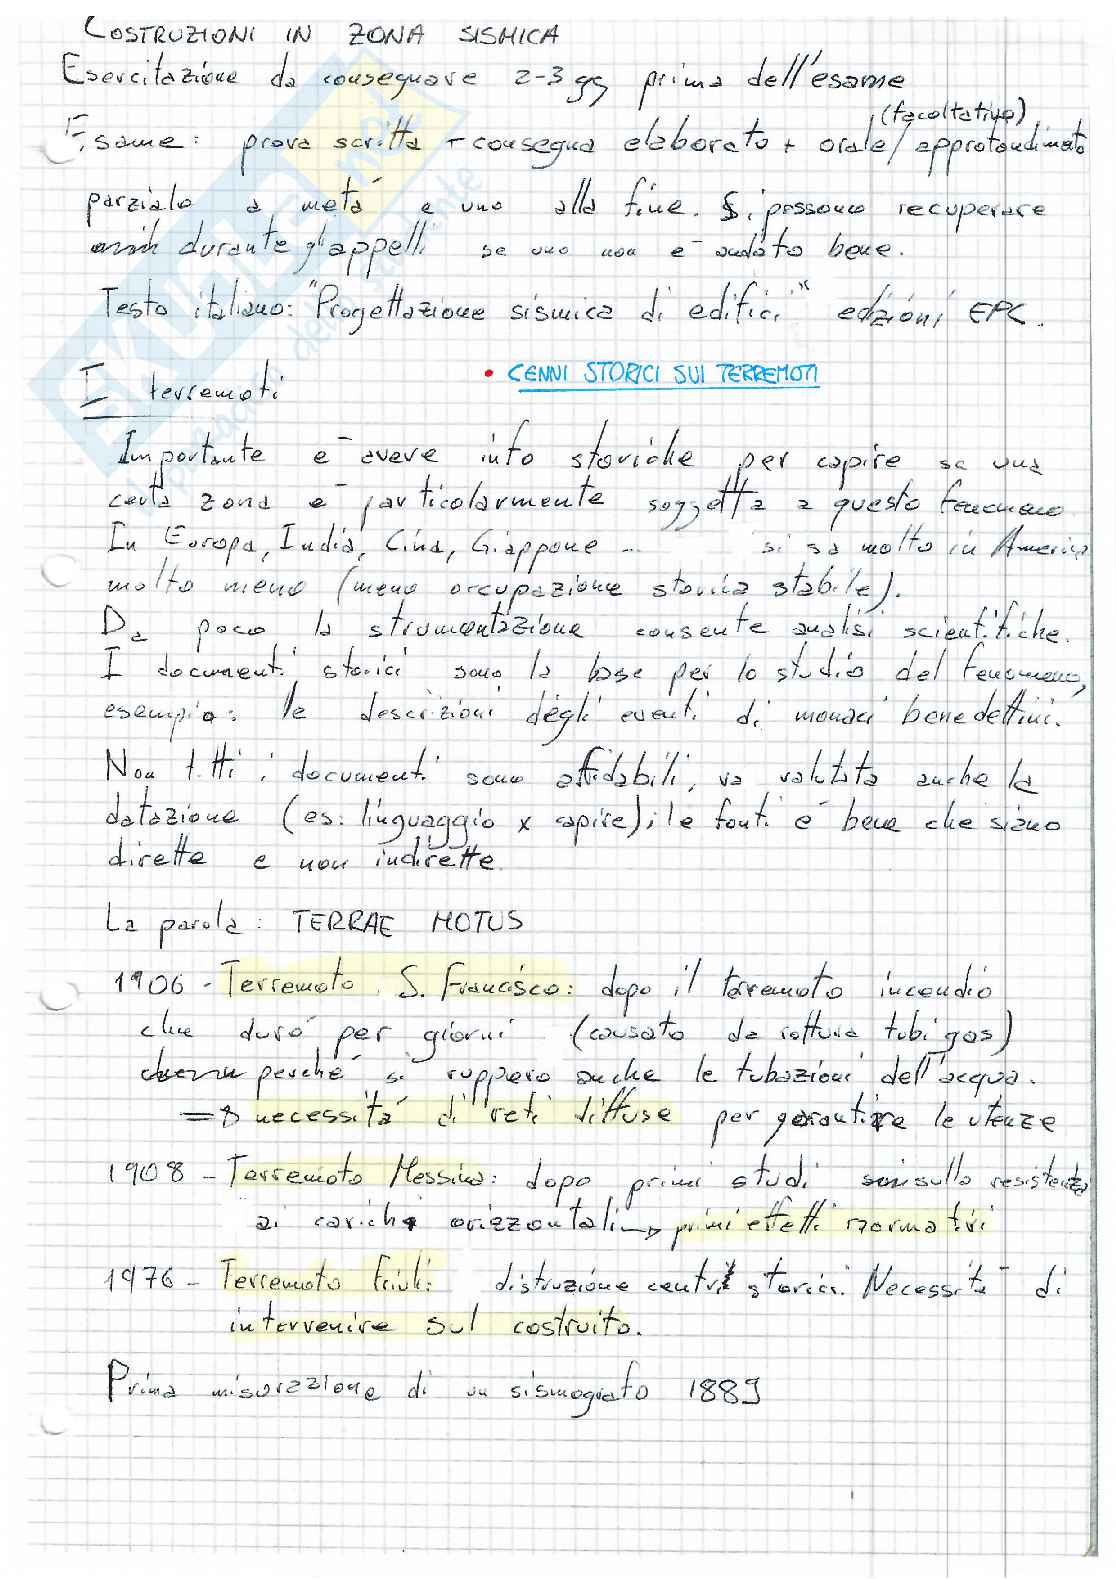 COSTRUZIONI IN ZONA SISMICA
Esercitazione da consegnare 2-3 gg prima dell'esame
(facoltativo)
Esame: prova scritta + consegna elaborato + orale/approfondimento
parziale a metà e uno alla fine. Si possono recuperare
durante gli appelli se uno non è andato bene.
Testo italiano: "Progettazione sismica di edifici" edizioni EPC.
• CENNI STORICI SUI TERREMOTI
I terremoti
Importante è avere info storiche per capire se una
certa zona è particolarmente soggetta a questo fenomeno
In Europa, India, Cina, Giappone ... si sa molto in America
molto meno (meno occupazione storica stabile).
Da poco la strumentazione consente analisi scientifiche.
I documenti storici sono la base per lo studio del fenomeno,
esempio: le descrizioni degli eventi di monaci benedettini.
Non tutti i documenti sono affidabili, va valutata anche la
datazione (es: linguaggio x capire); le fonti è bene che siano
dirette e non indirette.
La parola: TERRAE MOTUS
1906 - Terremoto S. Francisco: dopo il terremoto incendio
che durò per giorni (causato da rottura tubi gas)
perché si ruppero anche le tubazioni dell'acqua.
=> necessità di reti diffuse per garantire le utenze
1908 - Terremoto Messina: dopo primi studi sulla resistenza
ai carichi orizzontali → primi effetti normativi
1976 - Terremoto Friuli: distruzione centri storici. Necessità di
intervenire sul costruito.
Prima misurazione di un sismografo 1889